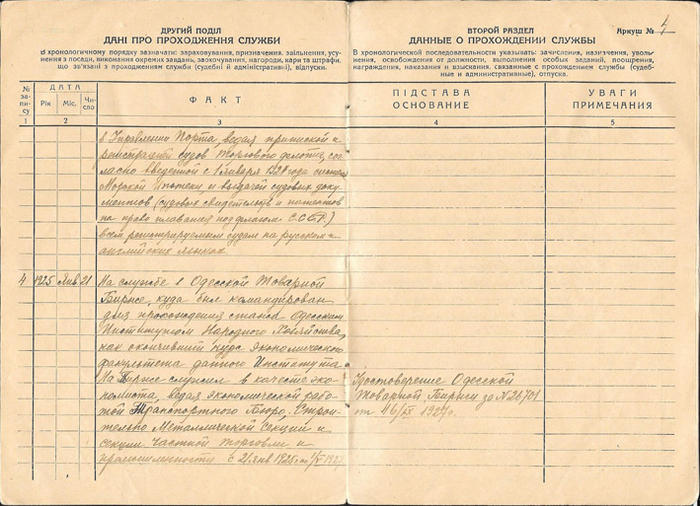 ДРУГИЙ ПОДІЛ
ДАНІ ПРО ПРОХОДЖЕННЯ СЛУЖБИ
В хронологічному порядку зазначати: зараховування, призначення, звільнення, усу-
нення з посади, виконання окремих завдань, заохочування, нагороди, кари та штрафи,
що зв'язані з проходженням служби (судебні й адміністративні), відпуски.
ВТОРОЙ РАЗДЕЛ
ДАННЫЕ О ПРОХОЖДЕНИИ СЛУЖБЫ
В хронологической последовательности указывать: зачисления, назначения, уволь-
нения, освобождения от должности, выполнения особых заданий, поощрения,
награждения, наказания и взыскания, связанные с прохождением службы (судеб-
ные и административные), отпуска.
Аркуш № 4
№ за-
пи-
су
ДАТА
Рік Міс. Число
ФАКТ
ПІДСТАВА
ОСНОВАНИЕ
УВАГИ
ПРИМЕЧАНИЯ
1 2 3 4 5
в Управлении Порта, ведая припиской и
регистрацией судов Торгового флота, сог-
ласно введенной с 1 января года системы
Морской ипотеки, и выдачей судовых доку-
ментов (судовых свидетельств и патентов
на право плавания под флагом С.С.С.Р.)
всем регистрируемым судам на русском и
английских языках.
4 1925 Янв. 21 На службе в Одесской Товарной
Бирже, куда был командирован
для прохождения стажа Одесским
Институтом Народного Хозяйства,
как окончивший курс Экономического
факультета данного Института.
На Бирже служил в качестве эко-
номиста, ведая экономической рабо-
той Транспортного Бюро, Строи-
тельно Металлической Секции и
секции частной торговли и
промышленности с 21 янв 1925 по
Удостоверение Одесской
Товарной Биржи за №
от 16/IX